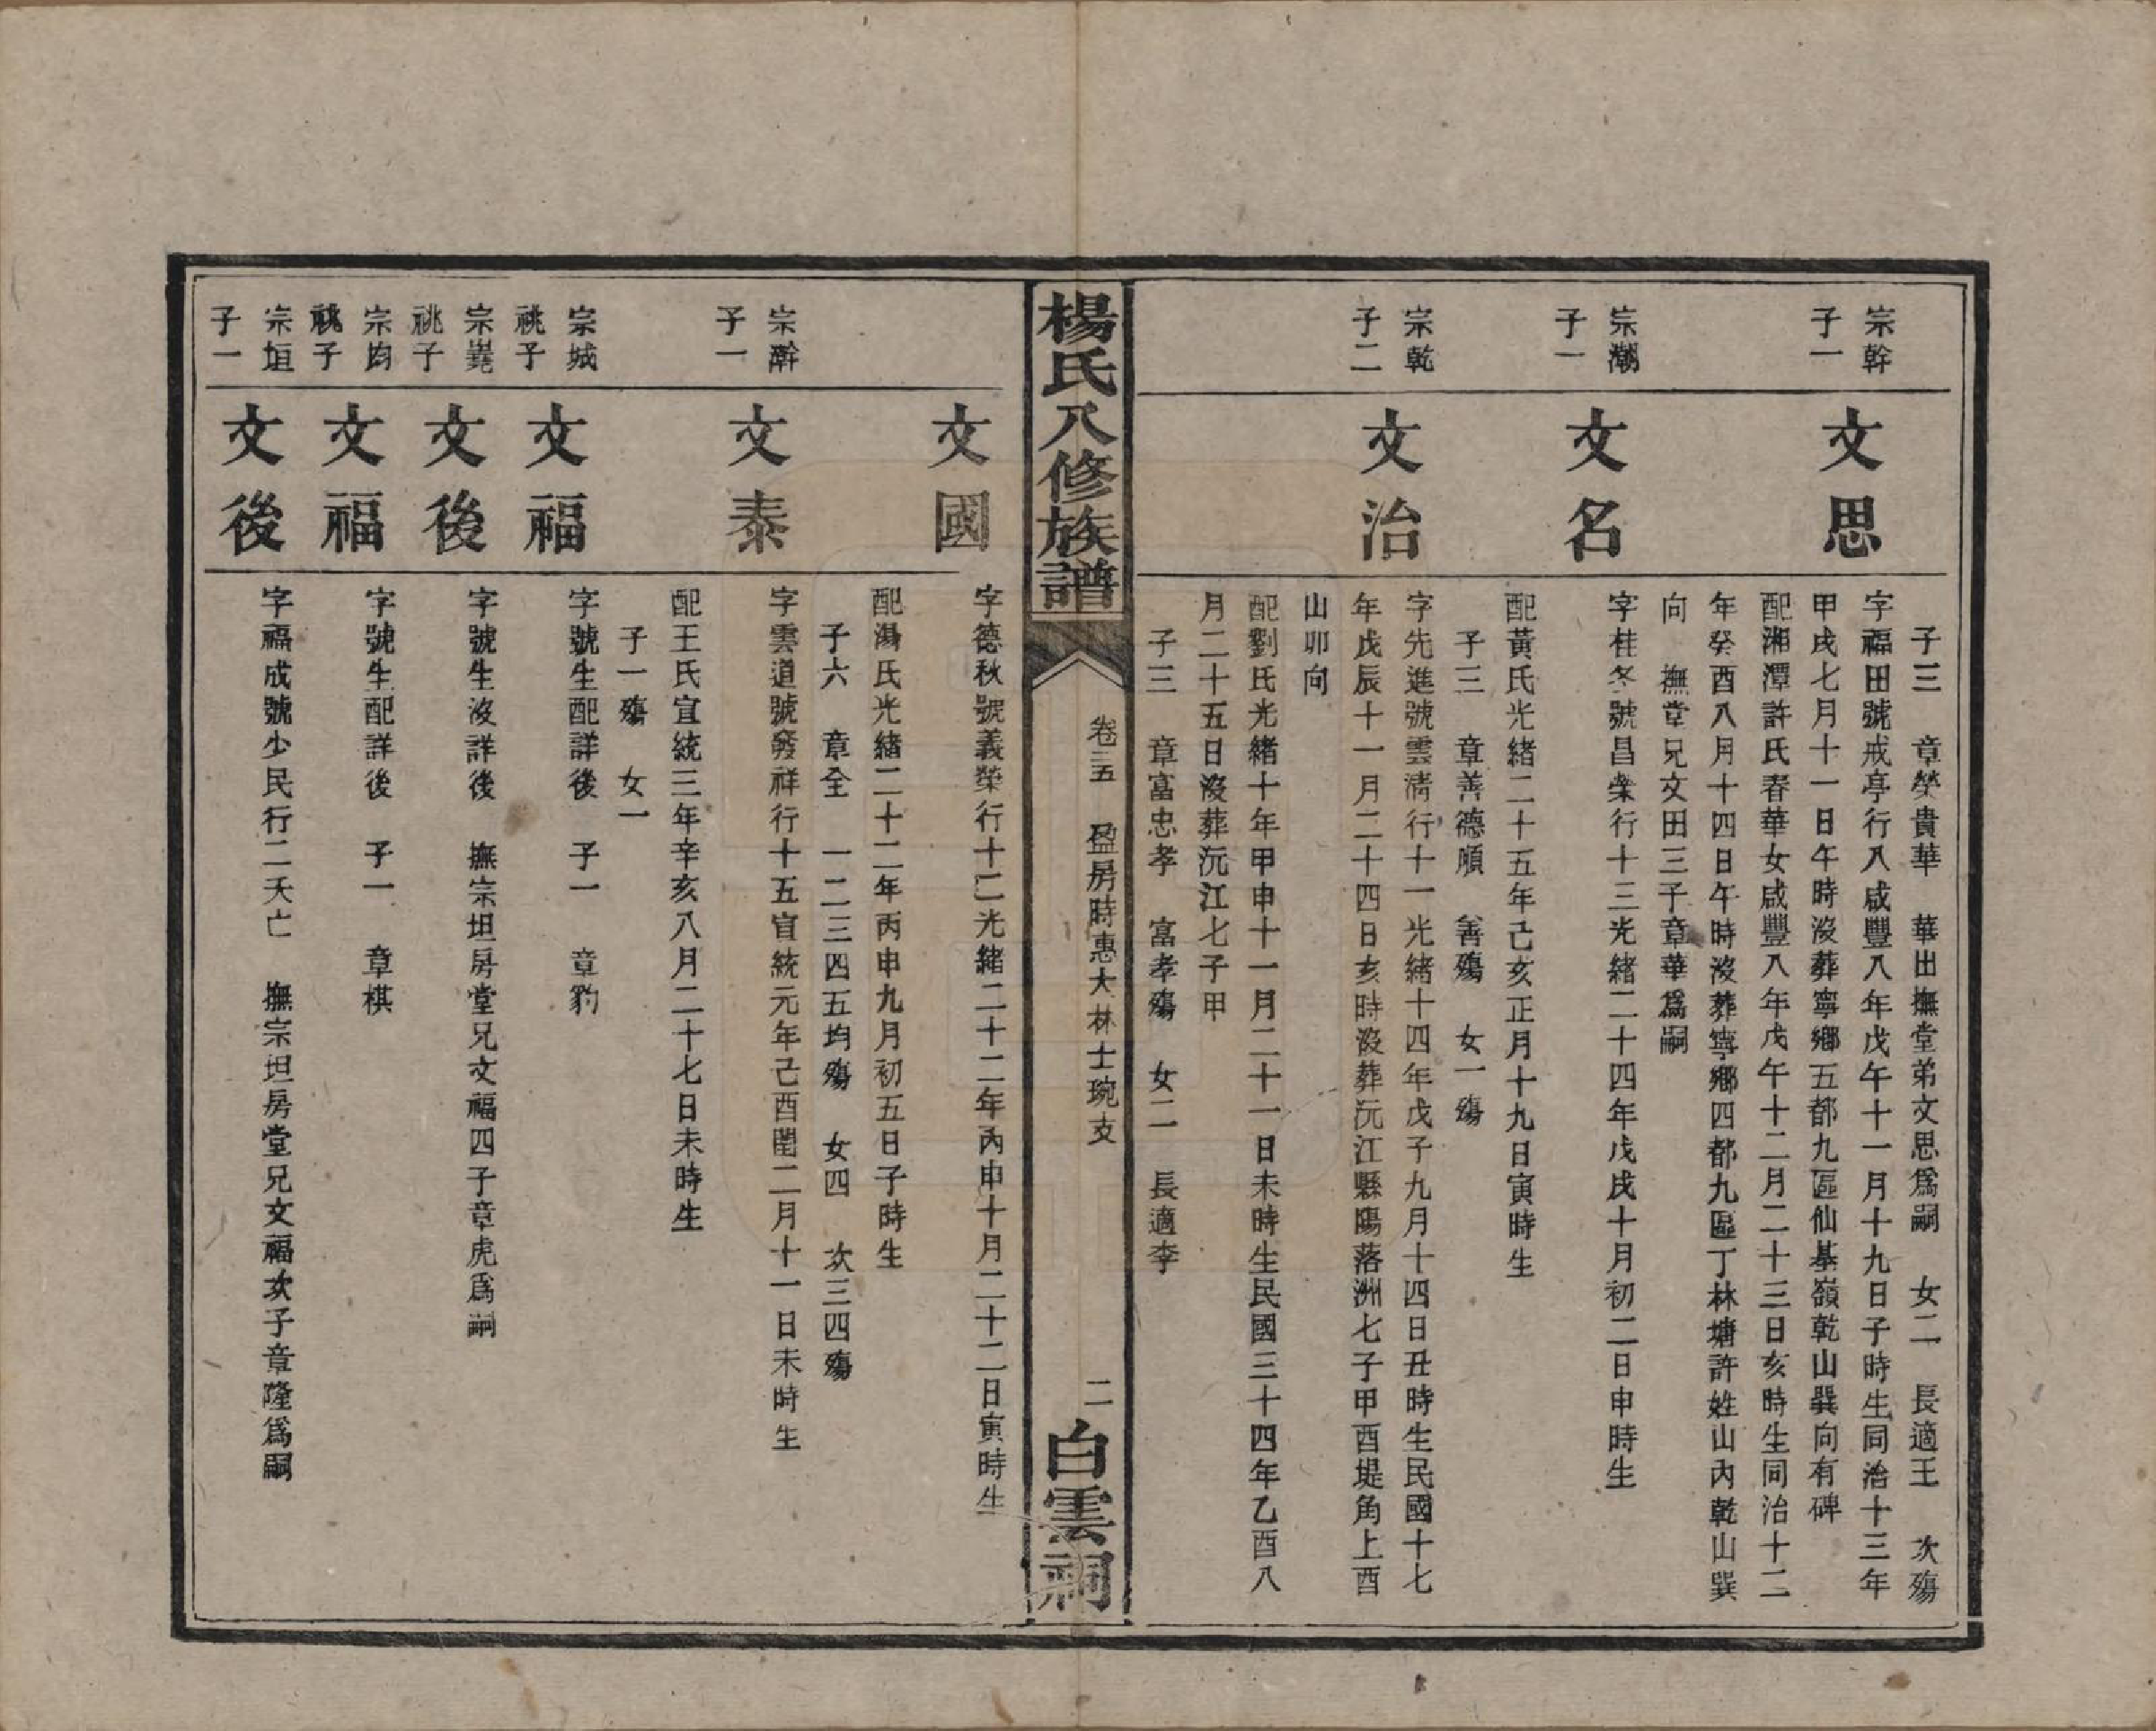 子三 章榮貴華 華出撫堂弟文思爲嗣 女二 長適王 次殤
宗幹
子一
文思
字福田號戒亭行八咸豐八年戊午十一月十九日子時生同治十三年
甲戌七月十一日午時沒葬寧鄉五都九區仙基嶺乾山巽向有碑
配湘潭許氏春華女咸豐八年戊午十二月二十三日亥時生同治十二
年癸酉八月十四日午時沒葬寧鄉四都九區丁林塘許姓山內乾山巽
向 撫堂兄文田三子章華爲嗣
宗潮
子一
文名
字桂冬號昌榮行十三光緒二十四年戊戌十月初二日申時生
配黃氏光緒二十五年己亥正月十九日寅時生
子三 章善德順 善殤 女一殤
宗乾
子二
文治
字先進號雲清行十一光緒十四年戊子九月十四日丑時生民國十七
年戊辰十一月二十四日亥時沒葬沅江縣陽落洲七子甲酉堤角上酉
山卯向
配劉氏光緒十年甲申十一月二十一日未時生民國三十四年乙酉八
月二十五日沒葬沅江七子甲
子三 章富忠孝 富孝殤 女二 長適李
楊氏八修族譜
卷三五 盈房時惠大林士琬支
二
白雲祠
文國
字德秋號義榮行十二光緒二十二年丙申十月二十二日寅時生
配湯氏光緒二十二年丙申九月初五日子時生
子六 章全 一二三四五均殤 女四 次三四殤
宗澣
子一
文泰
字雲道號發祥行十五宣統元年己酉閏二月十一日未時生
配王氏宣統三年辛亥八月二十七日未時生
子一殤 女一
宗城
祧子
文福
字號生配詳後 子一 章豹
宗嵬
祧子
文後
字號生沒詳後 撫宗坦房堂兄文福四子章虎爲嗣
宗均
祧子
文福
字號生配詳後 子一 章棋
宗垣
子一
文後
字福成號少民行二夭亡 撫宗坦房堂兄文福次子章隆爲嗣